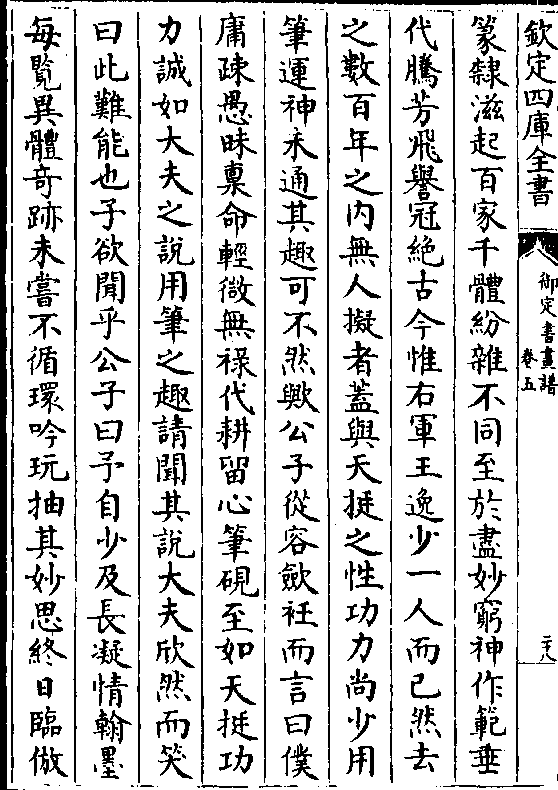 欽定四庫全書
御定書畫譜
卷五
篆隸滋起百家千體紛雜不同至於盡妙窮神作範垂
代騰芳飛譽冠絶古今惟右軍王逸少一人而已然去
之數百年之内無人擬者蓋與天挺之性功力尚少用
筆運神未通其趣可不然歟公子從容歛衽而言曰僕
庸疎愚昧禀命輕微無禄代耕留心筆硯至如天挺功
力誠如大夫之說用筆之趣請聞其說大夫欣然而笑
曰此難能也子欲聞乎公子曰予自少及長凝情翰墨
每覧異體奇跡未嘗不循環吟玩抽其妙思終日臨倣